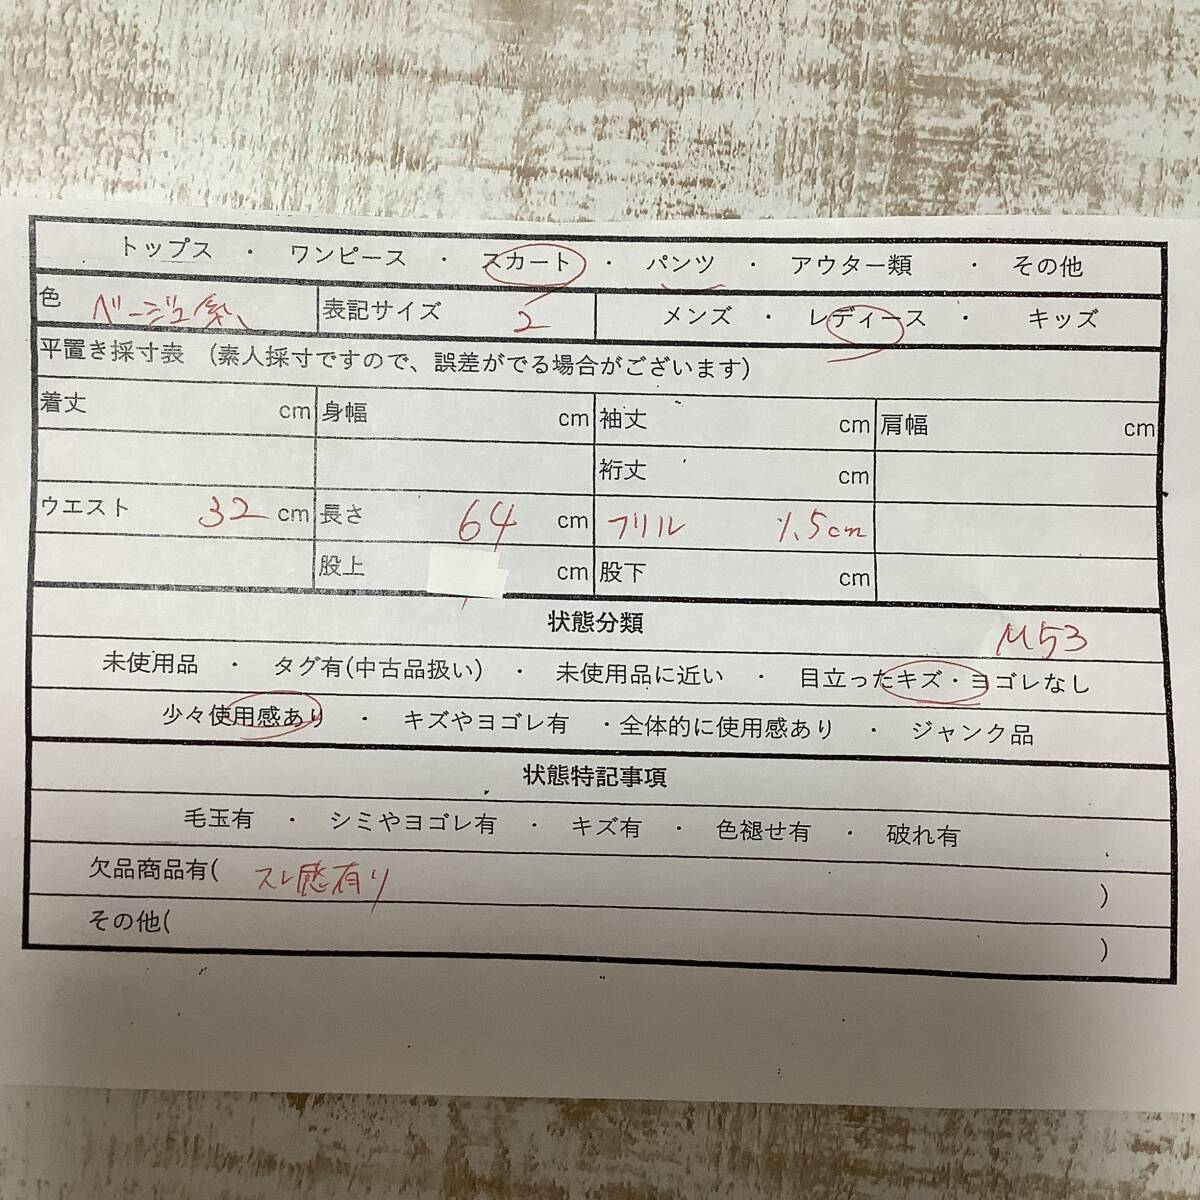 トップス ・ ワンピース ・ スカート ・ パンツ ・ アウター類 ・ その他
色 ベージュ系 表記サイズ 2 メンズ ・ レディース ・ キッズ
平置き採寸表 (素人採寸ですので、誤差がでる場合がございます)
着丈 cm 身幅 cm 袖丈 cm 肩幅 cm
裄丈 cm
ウエスト 32 cm 長さ 64 cm フリル 1.5cm
股上 cm 股下 cm
状態分類 M53
未使用品 ・ タグ有(中古品扱い) ・ 未使用品に近い ・ 目立ったキズ・ヨゴレなし
少々使用感あり ・ キズやヨゴレ有 ・全体的に使用感あり ・ ジャンク品
状態特記事項
毛玉有 ・ シミやヨゴレ有 ・ キズ有 ・ 色褪せ有 ・ 破れ有
欠品商品有( スレ感有り )
その他( )